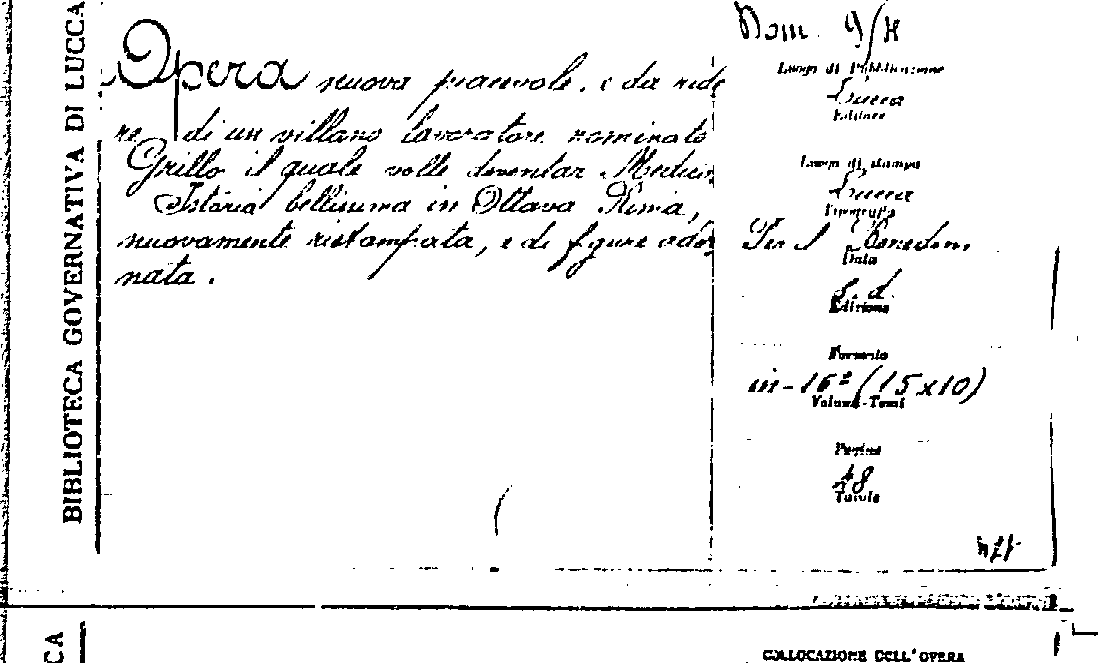 BIBLIOTECA GOVERNATIVA DI LUCCA
Opera nuova piacevole, e da ride
re di un villano lavoratore nominato
Grillo il quale volle deventar Medico
Istoria bellissima in Ottava Rima,
nuovamente ristampata, e di figure ador
nata.
Dom.
Luogo di Pubblicazione
Lucca
Editore
Luogo di stampa
Lucca
Tipografia
Data
s. d.
Edizione
Formato
in-16º (15x10)
Volumi-Tomi
Pagine
48
Tavole
CA
COLLOCAZIONE DELL'OPERA